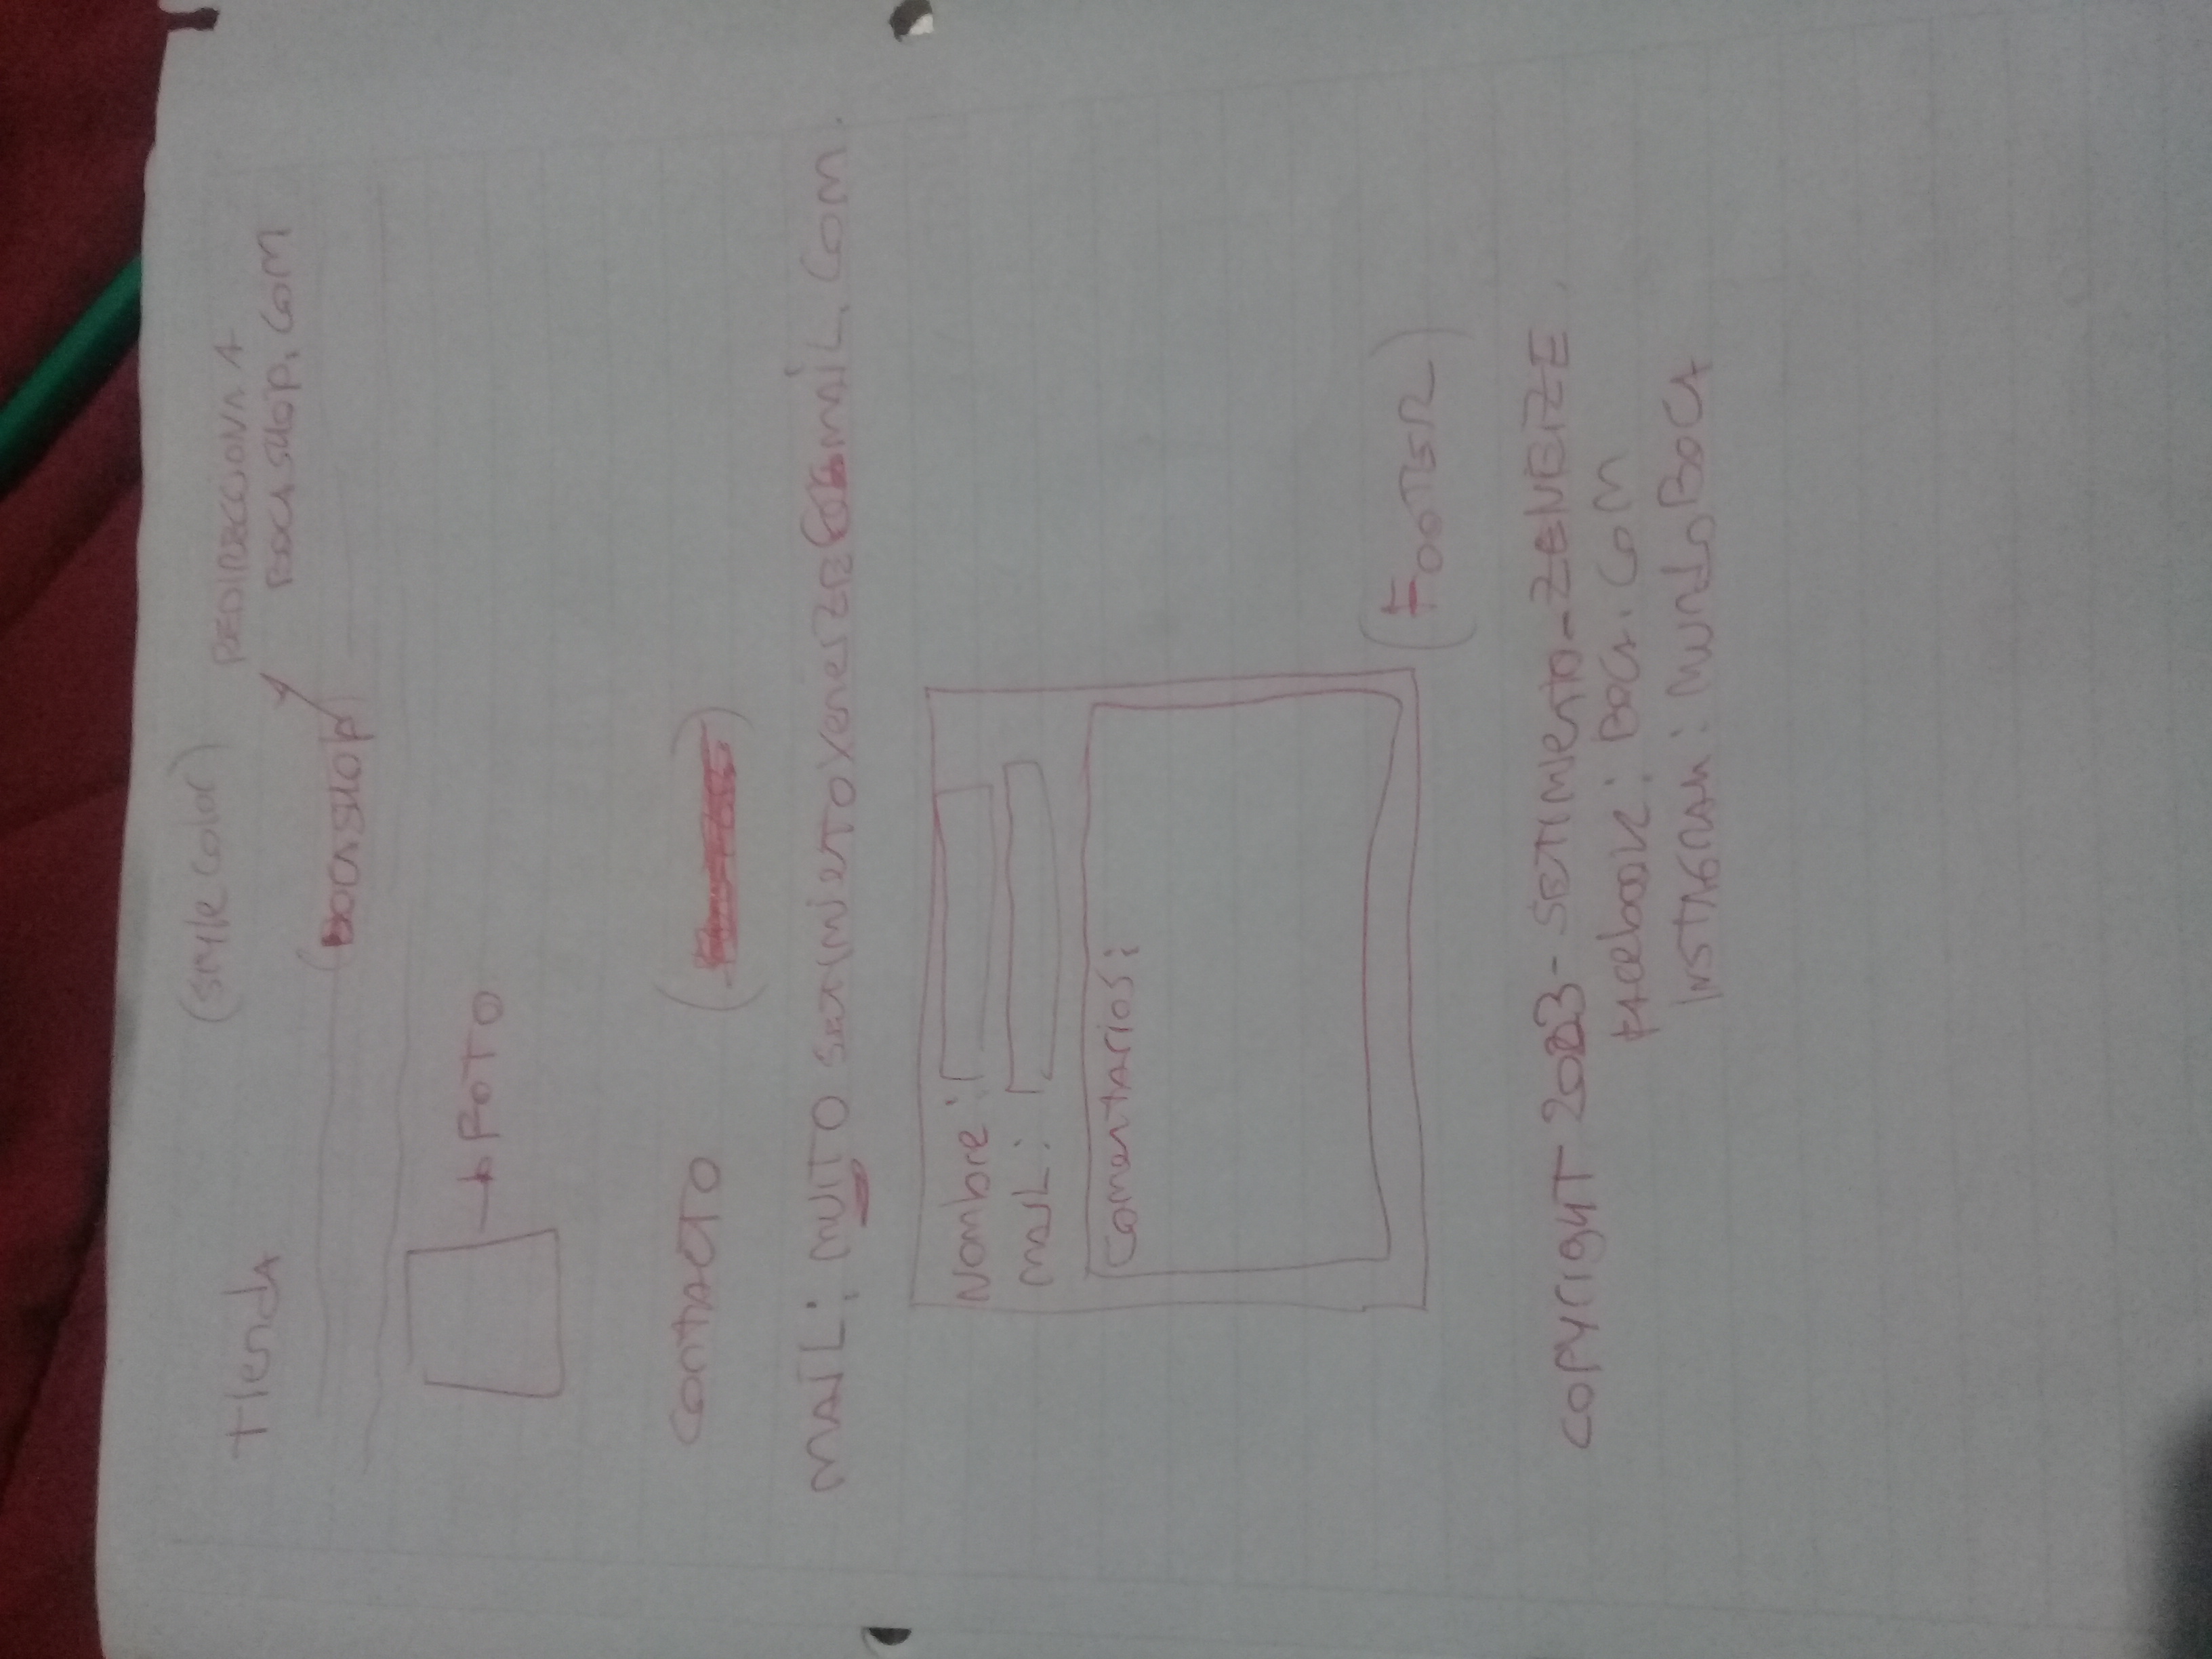 (style color)
tienda
REDIRECCIONA A
BOCA SHOP. COM
(BOCA SHOP)
FOTO
CONTACTO
MAIL: MUITO SETIMIENTOXENEIZE@GMAIL. COM.
Nombre:
MAIL:
Comentarios:
(FOOTER)
COPYrigHT 2023 - SETIMIENTO_ZENEIZE
FACEBOOK: BOCA. COM
INSTAGRAM: MUNDO BOCA